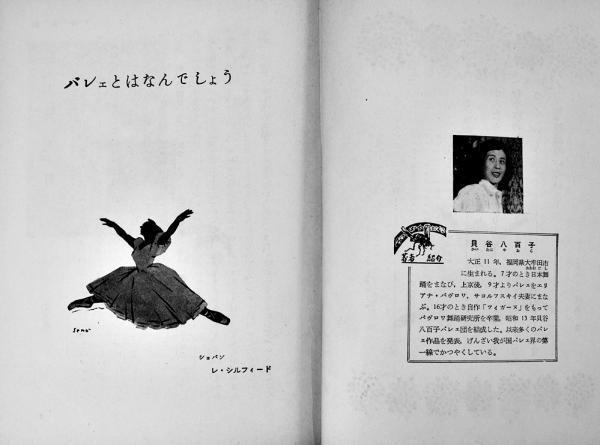 バレェとはなんでしょう
ショパン
レ・シルフィード
著者紹介
貝谷八百子
かいたにやおこ
大正11年、福岡県大牟田市
おおむたし
に生まれる。7才のとき日本舞
踊をまなび、上京後、9才よりバレェをエリ
アナ・パヴロワ、サヨルフスキイ夫妻にまな
ぶ。16才のとき自作「フィガーヌ」をもって
パヴロワ舞踊研究所を卒業。昭和13年貝谷
八百子バレェ団を結成した。以来多くのバレ
ェ作品を発表。げんざい我が国バレェ界の第
一線でかつやくしている。